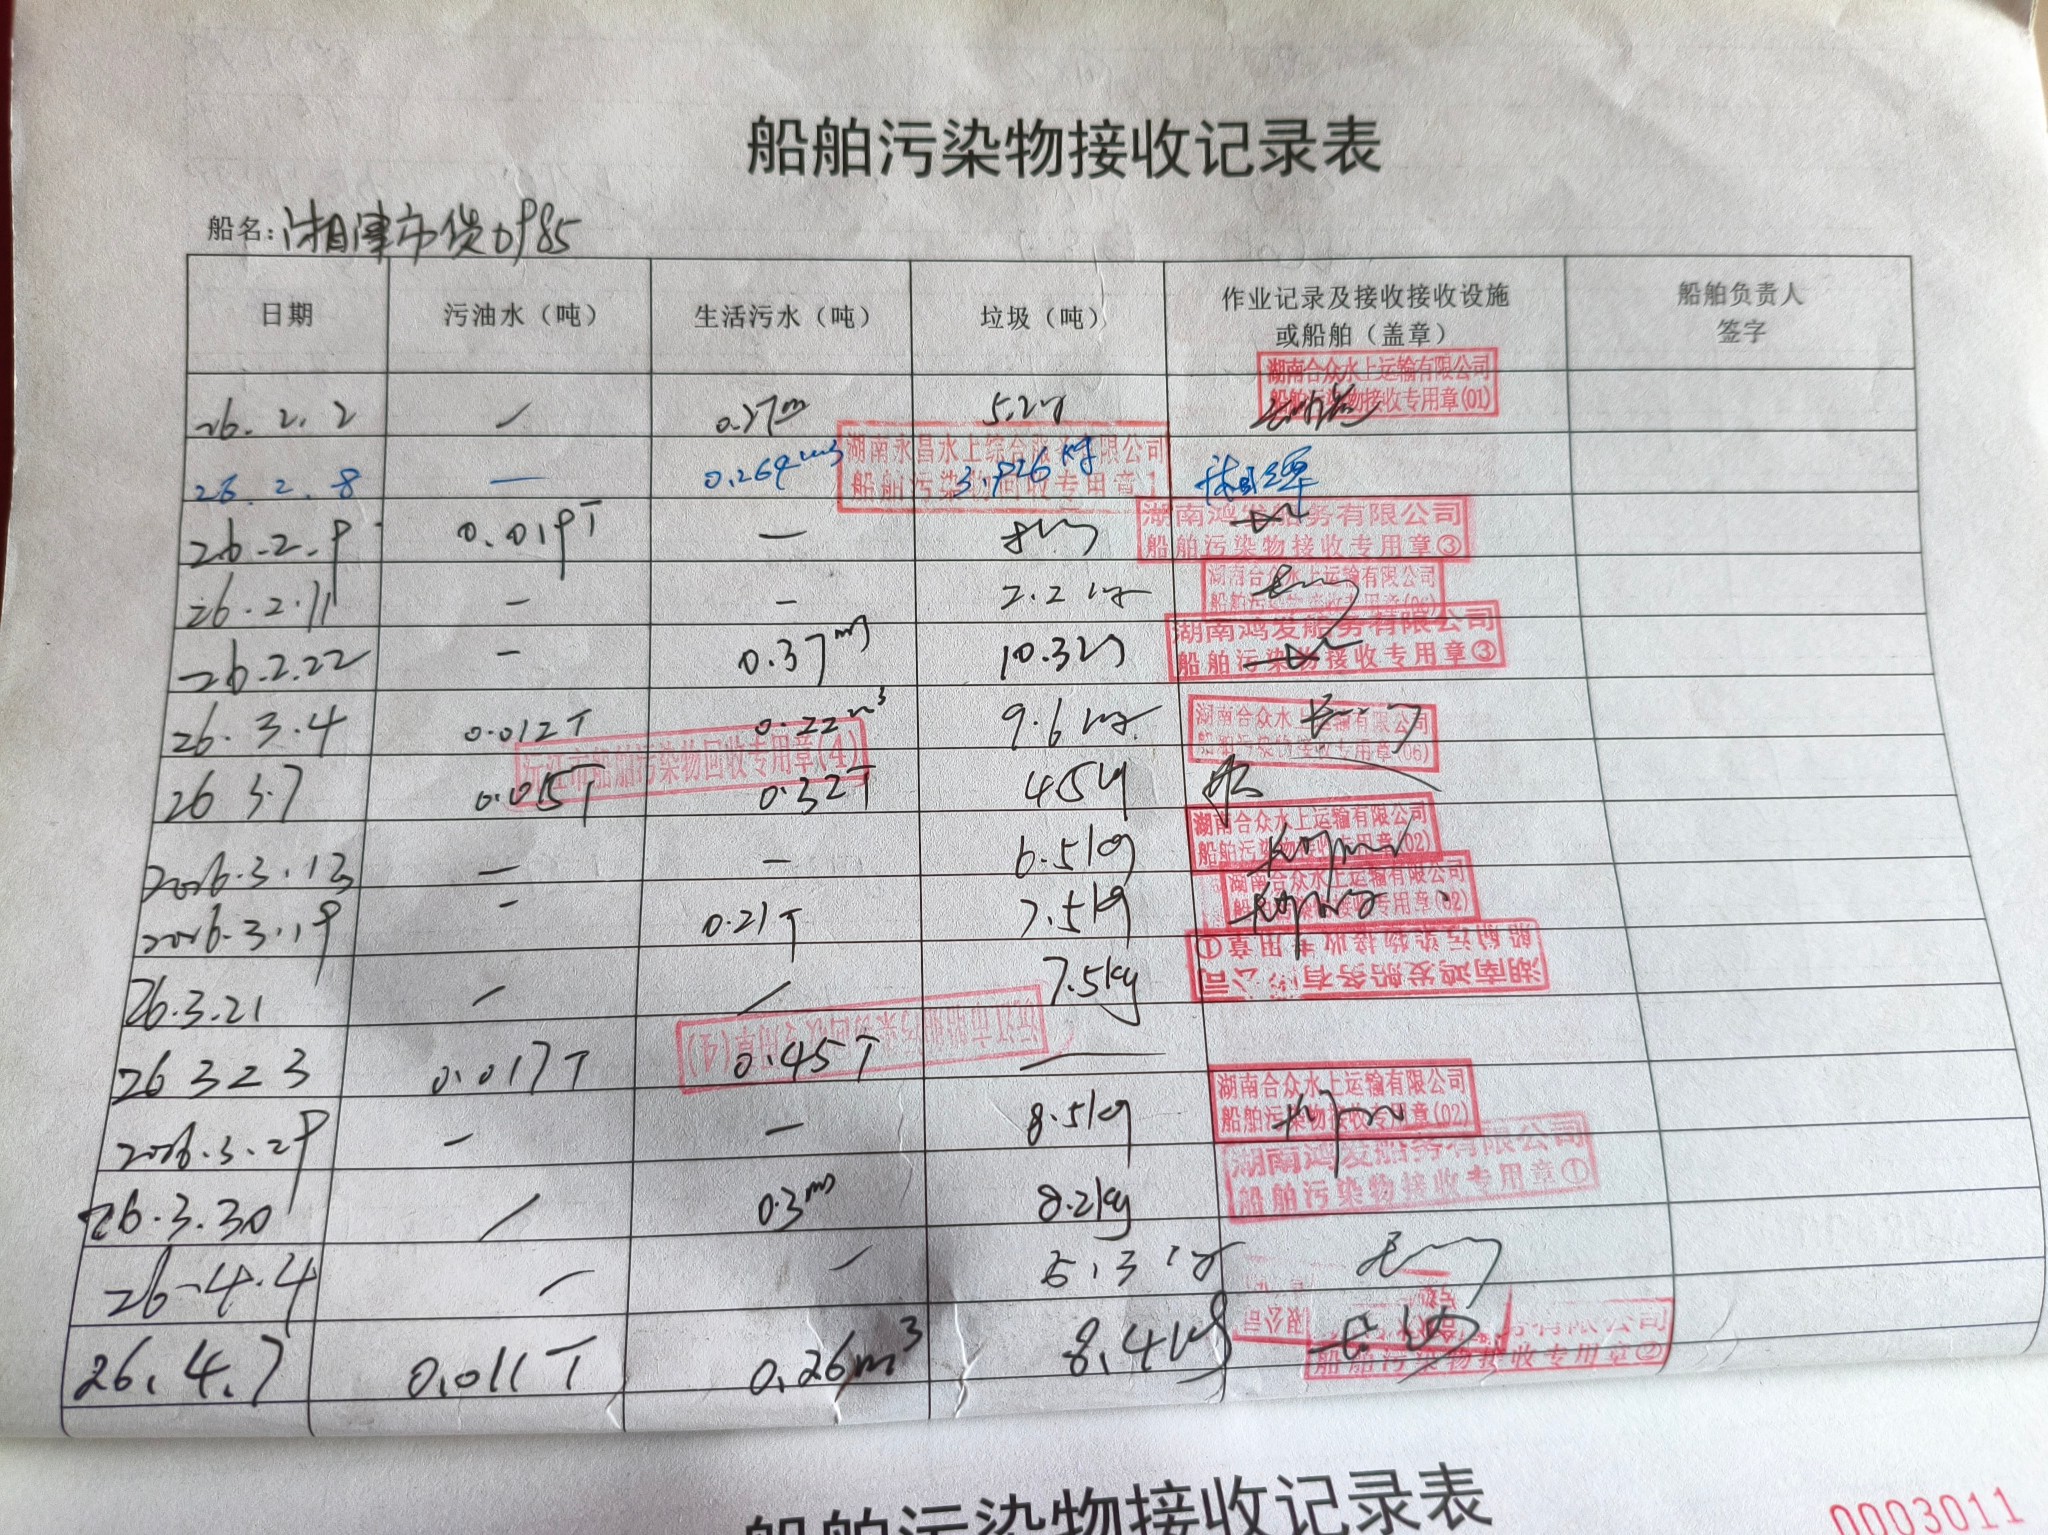 船舶污染物接收记录表
船名：湘津市货0985
日期 污油水（吨） 生活污水（吨） 垃圾（吨） 作业记录及接收接收设施或船舶（盖章） 船舶负责人签字
26.2.2 / 0.27m 5.2kg 湖南合众水上运输有限公司 船舶污染物接收专用章(01)
26.2.8 — 0.264m3 3.926kg 湖南永昌水上综合服务有限公司 船舶污染物回收专用章1
26.2.9 0.019T — 8kg 湖南鸿发船务有限公司 船舶污染物接收专用章③
26.2.11 — — 2.2kg 湖南合众水上运输有限公司 船舶污染物接收专用章(06)
26.2.22 — 0.37m3 10.3kg 湖南鸿发船务有限公司 船舶污染物接收专用章③
26.3.4 0.012T 0.22m3 9.6kg 湖南合众水上运输有限公司 船舶污染物接收专用章(06)
沅江市船舶污染物回收专用章(4)
26 3.7 0.015T 0.32T 45kg
2026.3.13 — — 6.5kg 湖南合众水上运输有限公司 船舶污染物接收专用章(02)
2026.3.19 — 0.21T 7.5kg 湖南合众水上运输有限公司 船舶污染物接收专用章(02)
26.3.21 / / 7.5kg 湖南鸿发船务有限公司 船舶污染物接收专用章①
沅江市船舶污染物回收专用章(4)
26 3 23 0.017T 0.45T —
2026.3.29 — — 8.5kg 湖南合众水上运输有限公司 船舶污染物接收专用章(02)
26.3.30 / 0.3m3 8.2kg 湖南鸿发船务有限公司 船舶污染物接收专用章①
26.4.4 / / 5.3kg
26.4.7 0.011T 0.26m3 8.4kg 船舶污染物接收专用章②
船舶污染物接收记录表
0003011